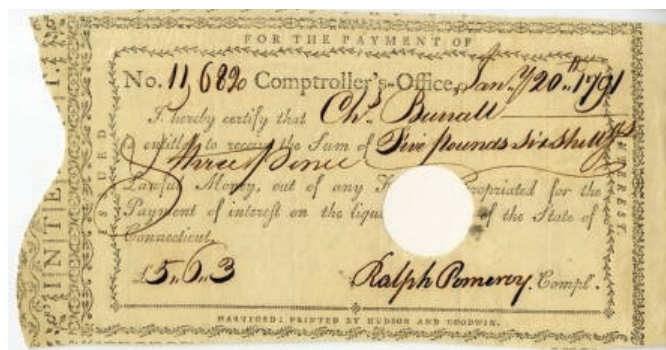 FOR THE PAYMENT OF
No. 11,682 Comptroller's-Office, Jan.y 20th 1791
I hereby certify that Chs Burrall
is entitled to receive the Sum of Five pounds six Shillgs
& three Pence
Lawful Money, out of any F propriated for the
Payment of interest on the liqui of the State of
Connecticut.
£5.,6.,3 Ralph Pomeroy. Compl.
HARTFORD: PRINTED BY HUDSON AND GOODWIN.
ISSUED
INTEREST.
INTE